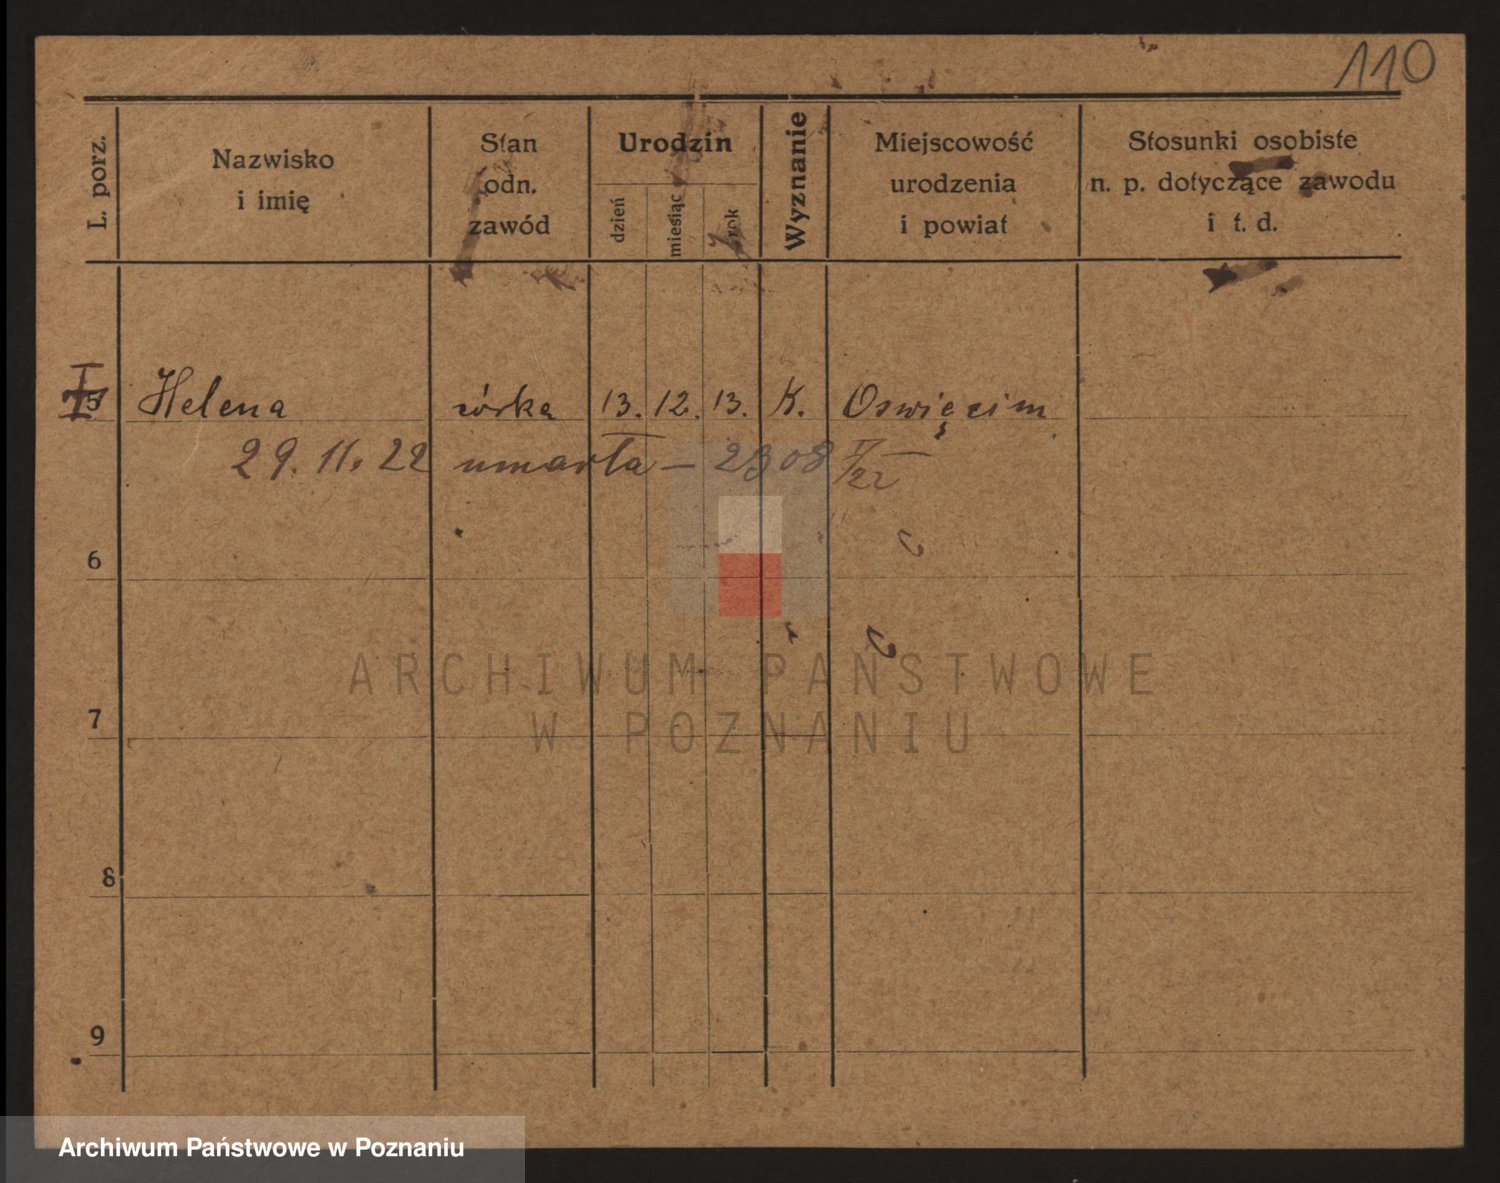 110
L. porz.
Nazwisko
i imię
Stan
odn.
zawód
Urodzin
dzień
miesiąc
rok
Wyznanie
Miejscowość
urodzenia
i powiat
Stosunki osobiste
n. p. dotyczące zawodu
i t. d.
5 Helena córka 13. 12. 13. K. Oswięcim
29. 11. 22 umarła – 2308 /22
6
7
8
9
ARCHIWUM PAŃSTWOWE
W POZNANIU
Archiwum Państwowe w Poznaniu